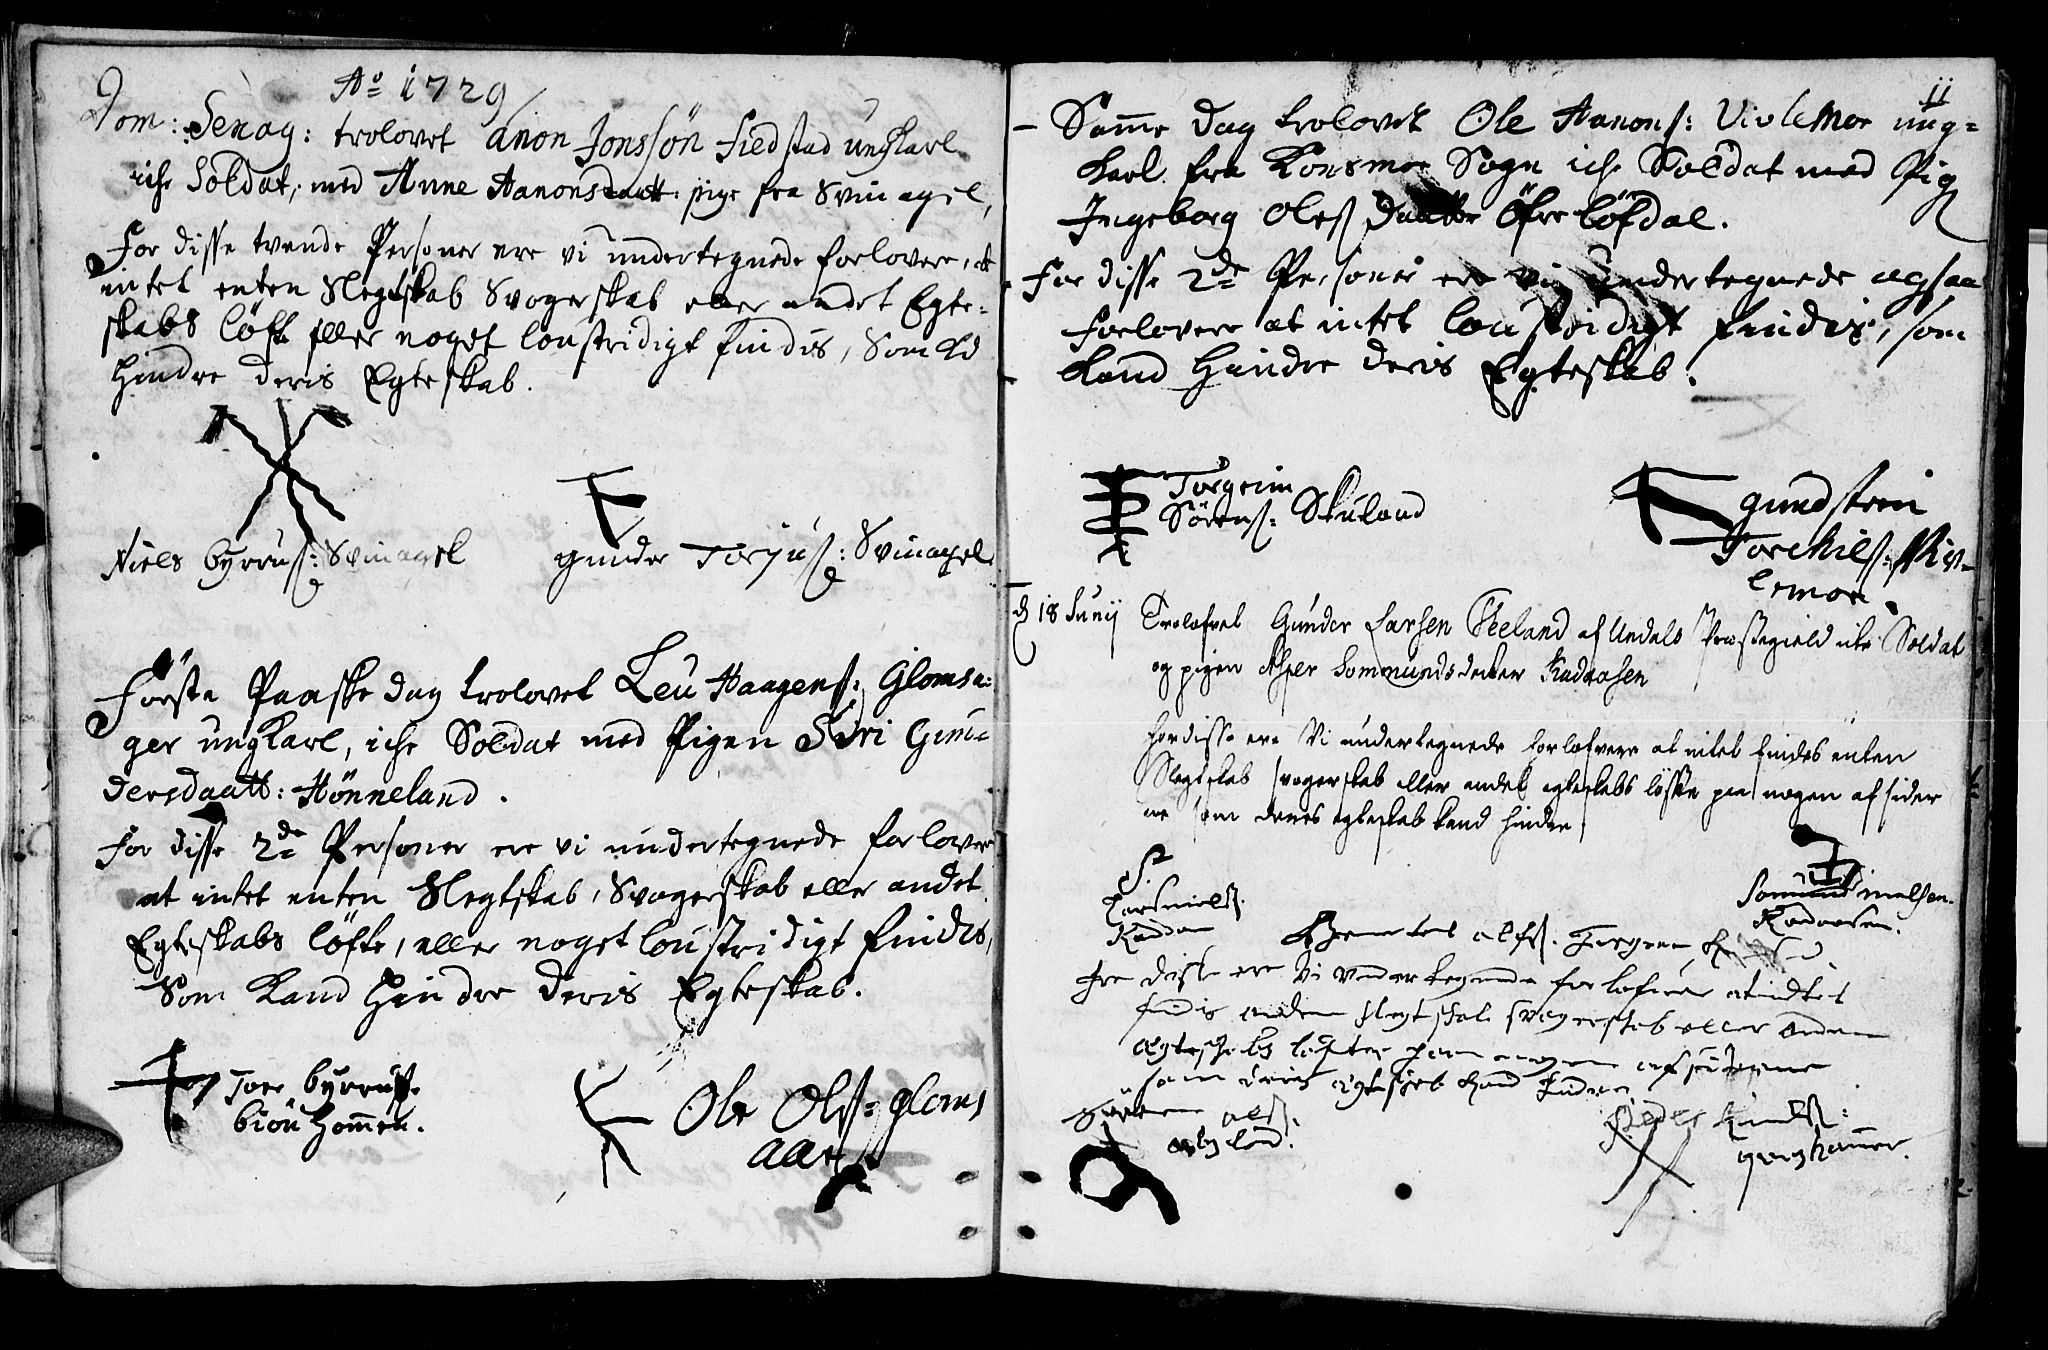 Ao 1729
Dom: Sexag: trolovet Anon Jonssøn Fiedstad ungKarl
iche Soldat, med Anne Aanonsdaatt: pige fra Svinagel,
For disse tvende Personer ere vi undertegnede forlovere, at
intet enten Slegtskab Svogerskab eller andet Egte-
skabs løfte eller noget loustridigt findis, Som Kd
Hindre deris Egteskab.
Niels byrruß: Svinagel
gunder Torjuß: Svinagel
Første Paaske dag trolovet Leu Haagenß: Glomsa-
ger ungKarl, iche Soldat med Pigen Siri Gun-
dersdaatt: Hønneland.
For disse 2de Personer ere vi undertegnede forlover
at intet enten Slegtskab, Svogerskab eller andet
Egteskabs løfte, eller noget loustridigt findis,
Som Kand Hindre deris Egteskab.
Tore byrruß:
biøu hommen.
Ole Olß: gloms
aaer
11
- Samme dag trolovet Ole Aanonß: Vivlemoe ung-
Karl fra Konsmoe Sogn iche Soldat med Pig
Ingeborg Oleß daatter Øfre løfdal.
For disse 2de Personer ere vi undertegnede ogsaa
forlovere at intet loustridigt findis, som
Kand Hindre deris Egteskab.
Torgeim
Sørenß: Skuland
gundstein
Torchilß: Viv-
lemoe.
d 18 Junij Trolofvet Gunder Larsen Eeland af Undals Præstegield iche Soldat
og pigen Aser Sommundsdatter Kadaasen
for disse ere Vi undertegnede forlofvere at intet findes enten
Slegtskab svogerskab eller andet egteskabs løffte paa nogen af sider
ne som deres egteskab kand hindre
Lars nielß.
Somund nielsen
Kadaasen.
for disse ere vi under tegnede forlofvere at indtet
findis anden slegtskab svogerskab eller anden
ægteskabs løfter paa nogen af siderne
som deris ægteskab kand hindre
Peder Knudß: